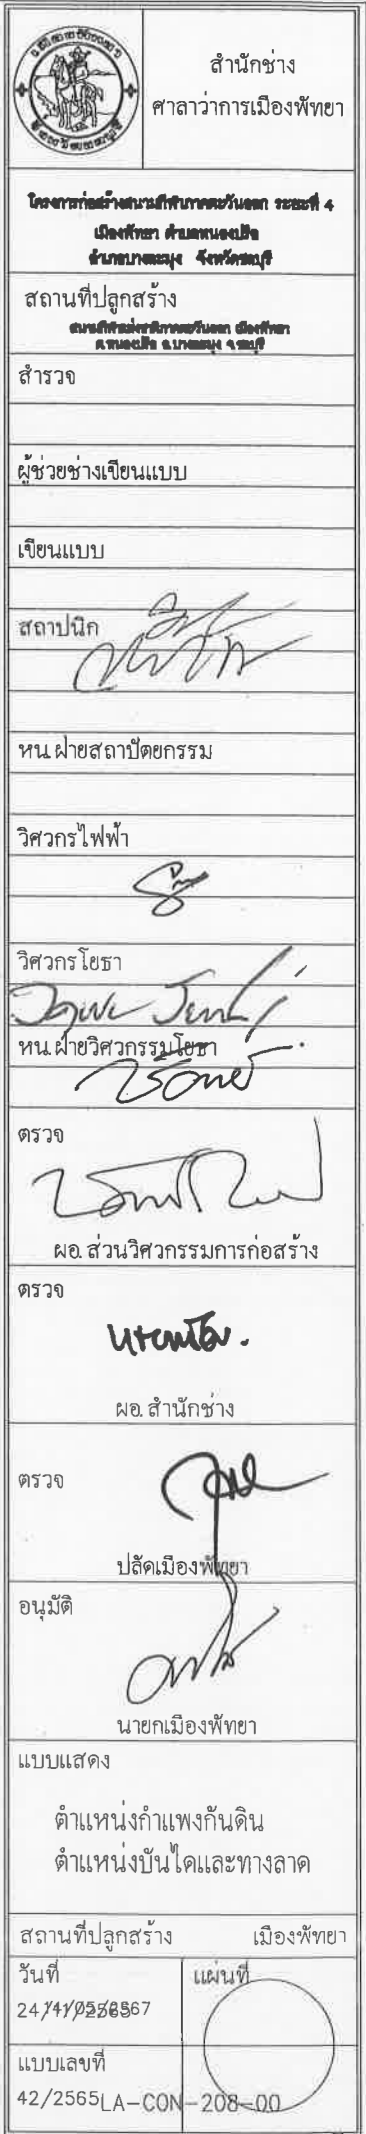 สำนักช่าง
ศาลาว่าการเมืองพัทยา
โครงการก่อสร้างสนามกีฬาภาคตะวันออก ระยะที่ 4
เมืองพัทยา ตำบลหนองปรือ
อำเภอบางละมุง จังหวัดชลบุรี
สถานที่ปลูกสร้าง
สนามกีฬาแห่งชาติภาคตะวันออก เมืองพัทยา
ต.หนองปรือ อ.บางละมุง จ.ชลบุรี
สำรวจ
ผู้ช่วยช่างเขียนแบบ
เขียนแบบ
สถาปนิก
หน.ฝ่ายสถาปัตยกรรม
วิศวกรไฟฟ้า
วิศวกรโยธา
หน.ฝ่ายวิศวกรรมโยธา
ตรวจ
ผอ.ส่วนวิศวกรรมการก่อสร้าง
ตรวจ
ผอ.สำนักช่าง
ตรวจ
ปลัดเมืองพัทยา
อนุมัติ
นายกเมืองพัทยา
แบบแสดง
ตำแหน่งกำแพงกันดิน
ตำแหน่งบันไดและทางลาด
สถานที่ปลูกสร้าง เมืองพัทยา
วันที่ แผ่นที่
แบบเลขที่
42/2565 LA-CON-208-00